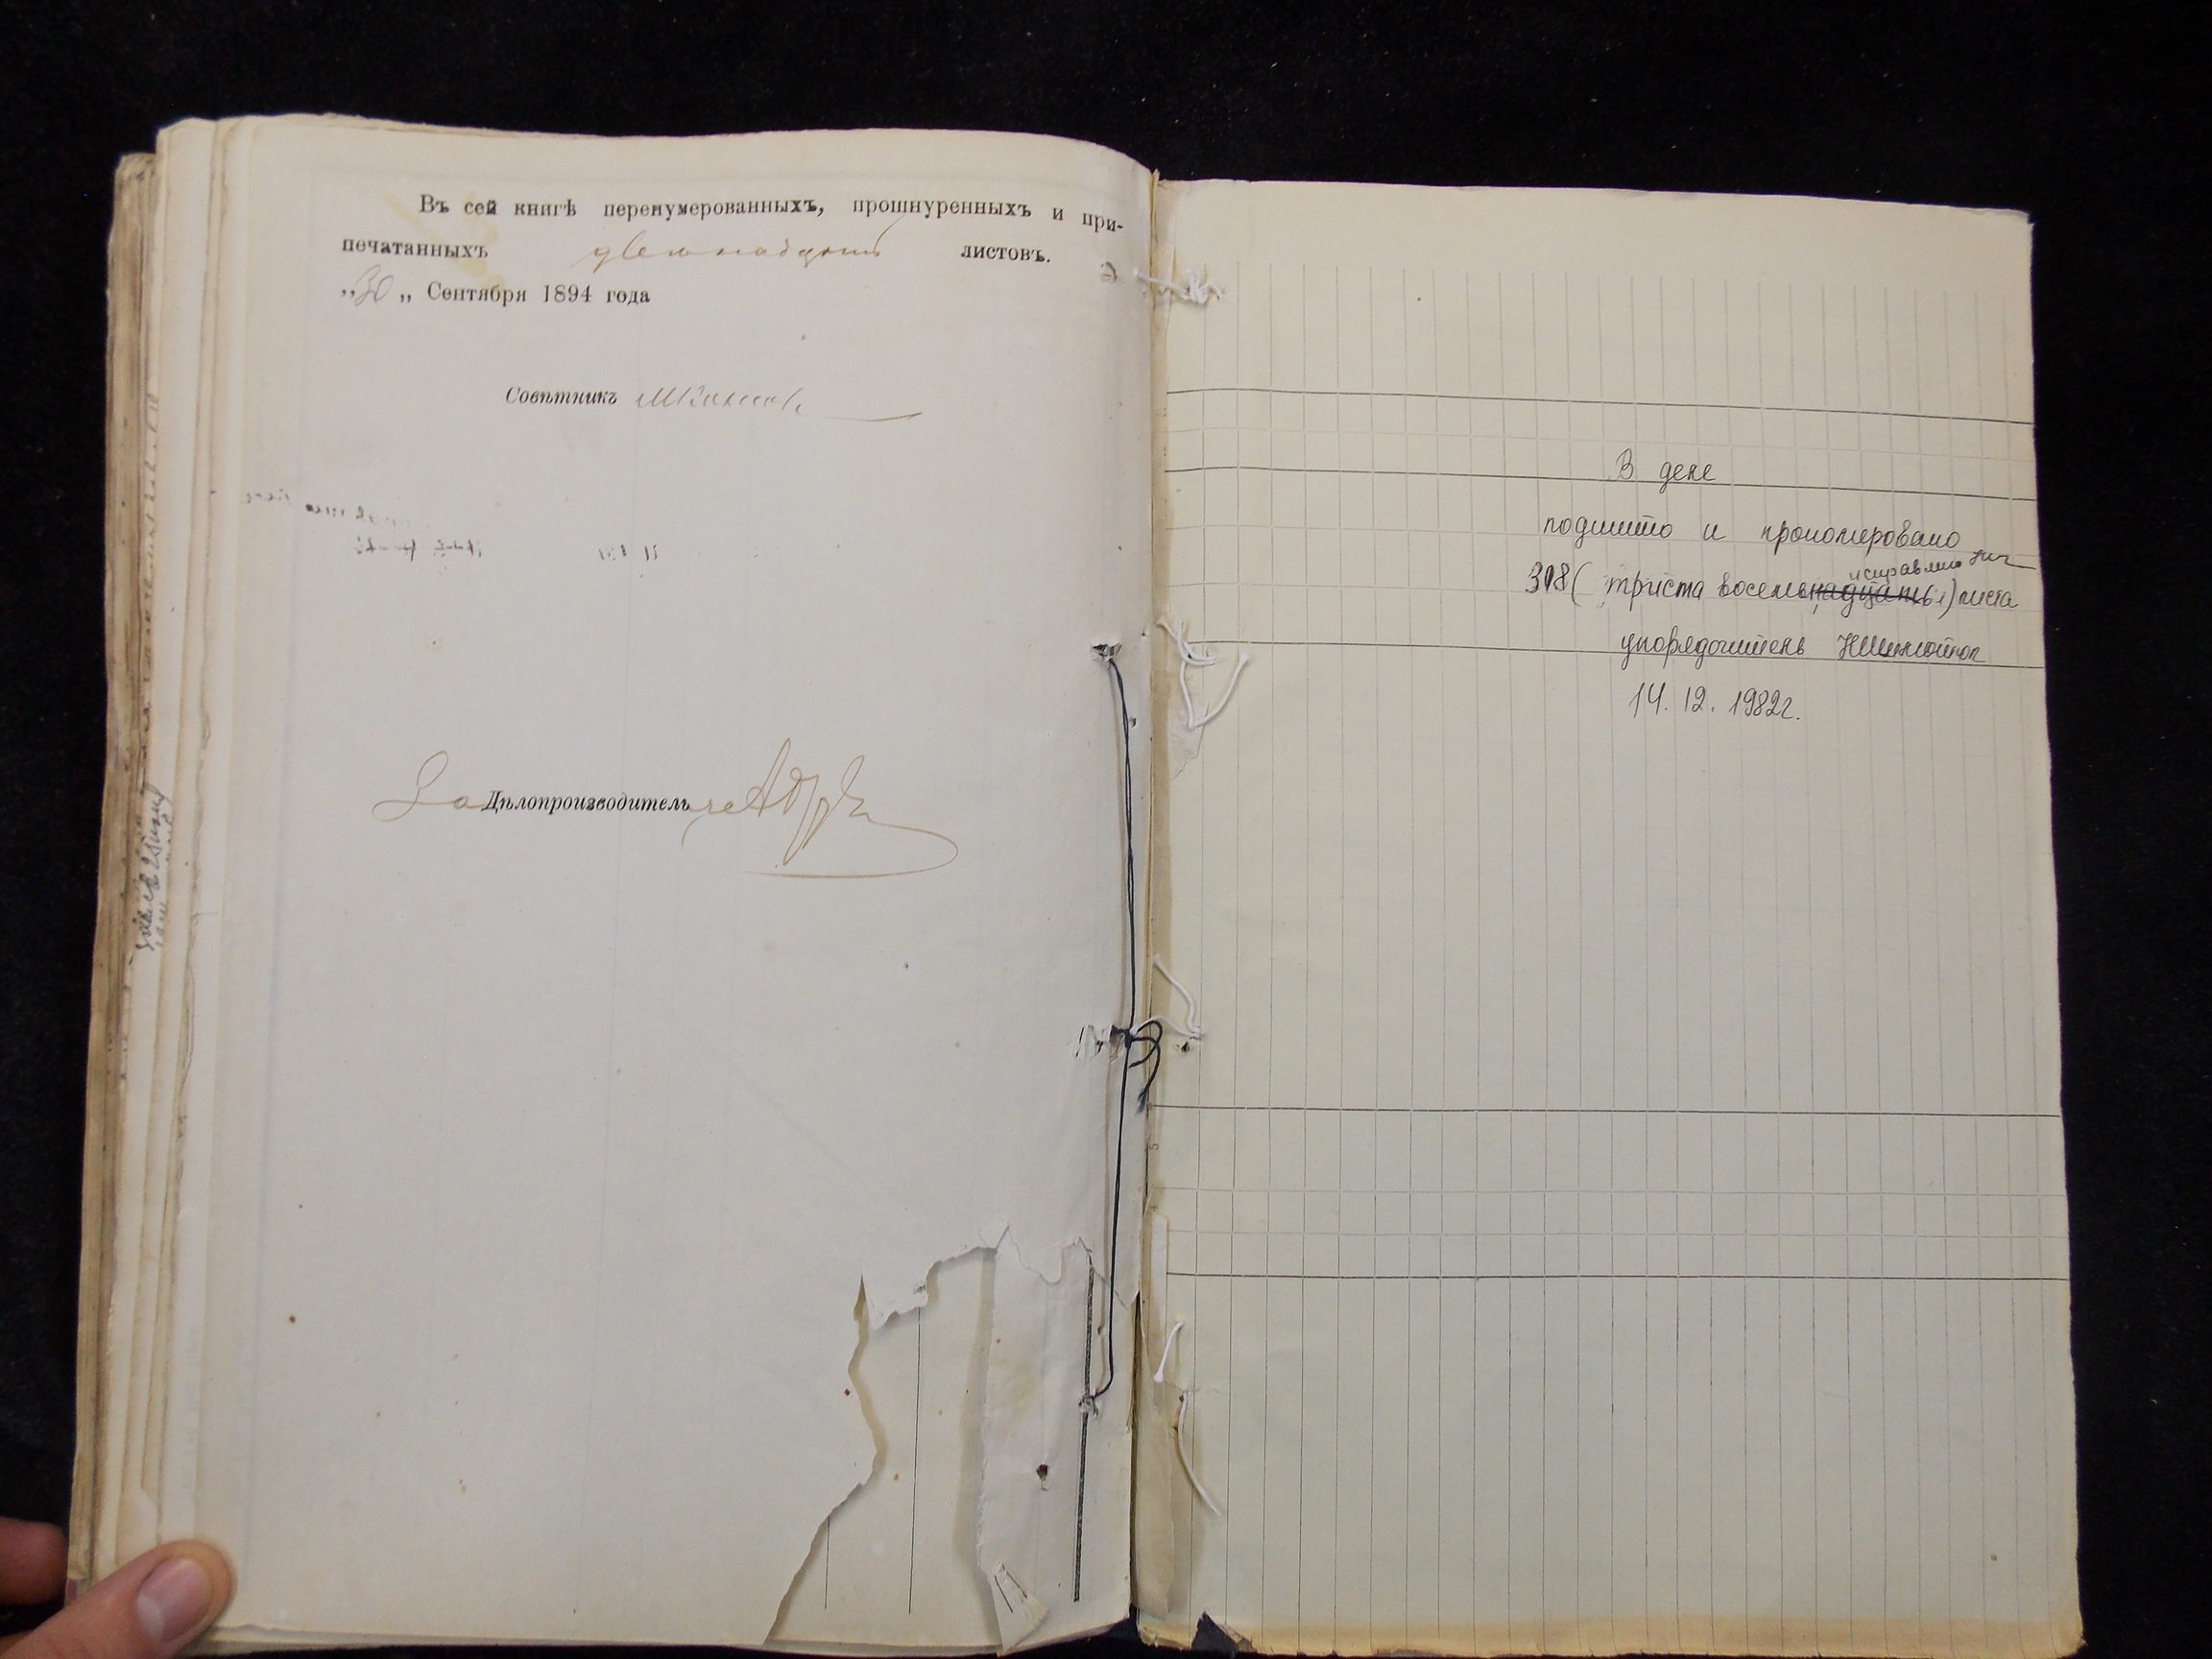 Въ сей книгѣ перенумерованныхъ, прошнуренныхъ и при-
печатанныхъ двенадцать листовъ.
„30„ Сентября 1894 года
Совѣтникъ
За Дѣлопроизводитель
В деле
подшито и прономеровано
исправлено
318 ( триста восемьнадцать ) листа
упорядочитель
14. 12. 1982г.